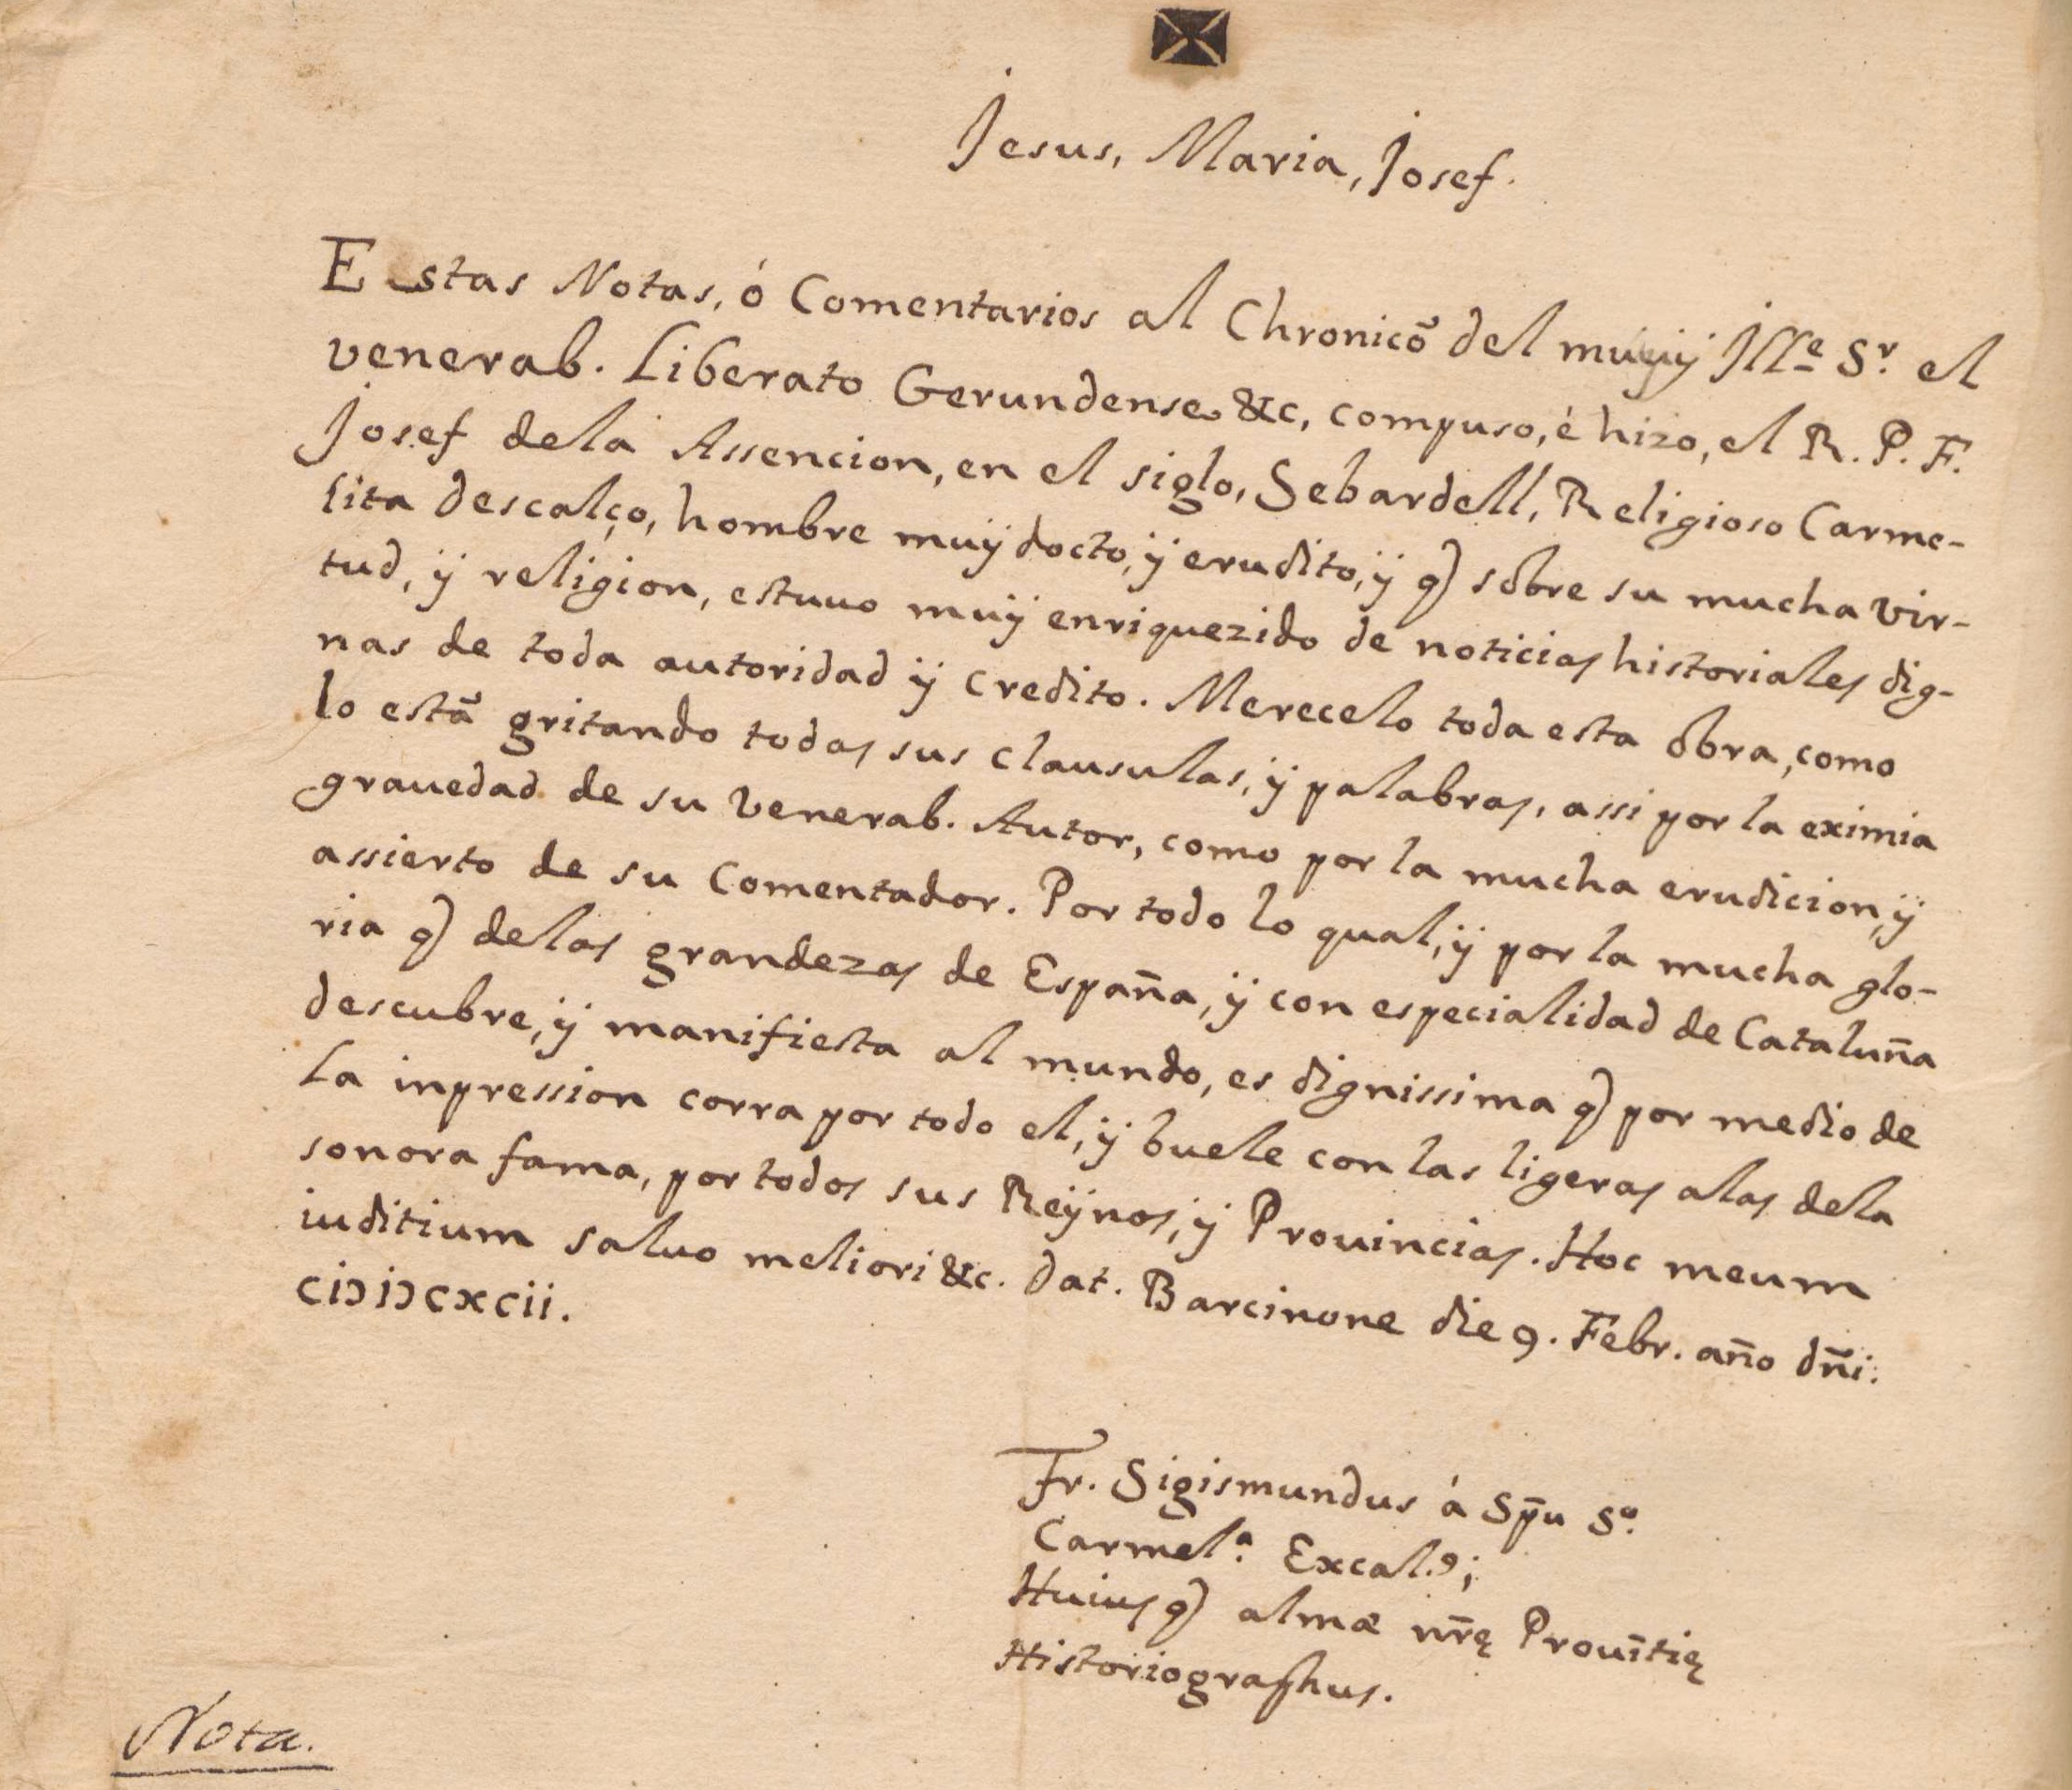 Jesus, Maria, Josef.
Estas Notas, ó Comentarios al Chronicõ del muy Jlle Sr. el
venerab. Liberato Gerundense &c, compuso, é hizo, el R. P. F.
Josef dela Assencion, en el siglo, Sebardell, Religioso Carme-
lita descalço, hombre muÿ docto, ÿ erudito, ÿ q) sobre su mucha vir-
tud, ÿ religion, estuuo muÿ enriquezido de noticias historiales dig-
nas de toda autoridad ÿ credito. Merecelo toda esta obra, como
lo està gritando todas sus clausulas, ÿ palabras, assi por la eximia
grauedad de su venerab. Autor, como por la mucha erudicion, ÿ
assierto de su Comentador. Por todo lo qual, ÿ por la mucha glo-
ria q) delas grandezas de España, ÿ con especialidad de Cataluña
descubre, ÿ manifiesta al mundo, es dignissima q) por medio de
la inpression corra por todo el, ÿ buele con las ligeras alas dela
sonora fama, por todos sus Reÿnos, ÿ Prouincias. Hoc meum
iuditium saluo meliori &c. dat. Barcinone die 9. Febr. año dñi.
CIƆ IƆ CXCII.
Fr. Sigismundus á Sp̃u So.
Carmela. Excal.9;
Huiusq) almæ nr̃ę Prouĩtię
Historiographus.
Nota.